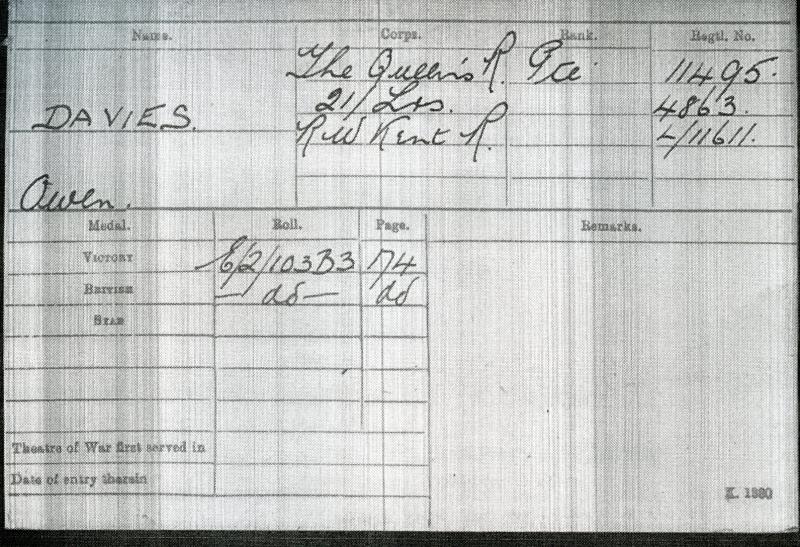 Name. Corps. Rank. Regtl. No.
The Queen's R. Pte 11495.
21/Lrs. 4863.
DAVIES. R W Kent R. L/11611.
Owen.
Medal. Roll. Page. Remarks.
VICTORY E/2/103B3 174
BRITISH — do — do
STAR
Theatre of War first served in
Date of entry therein
K. 1380